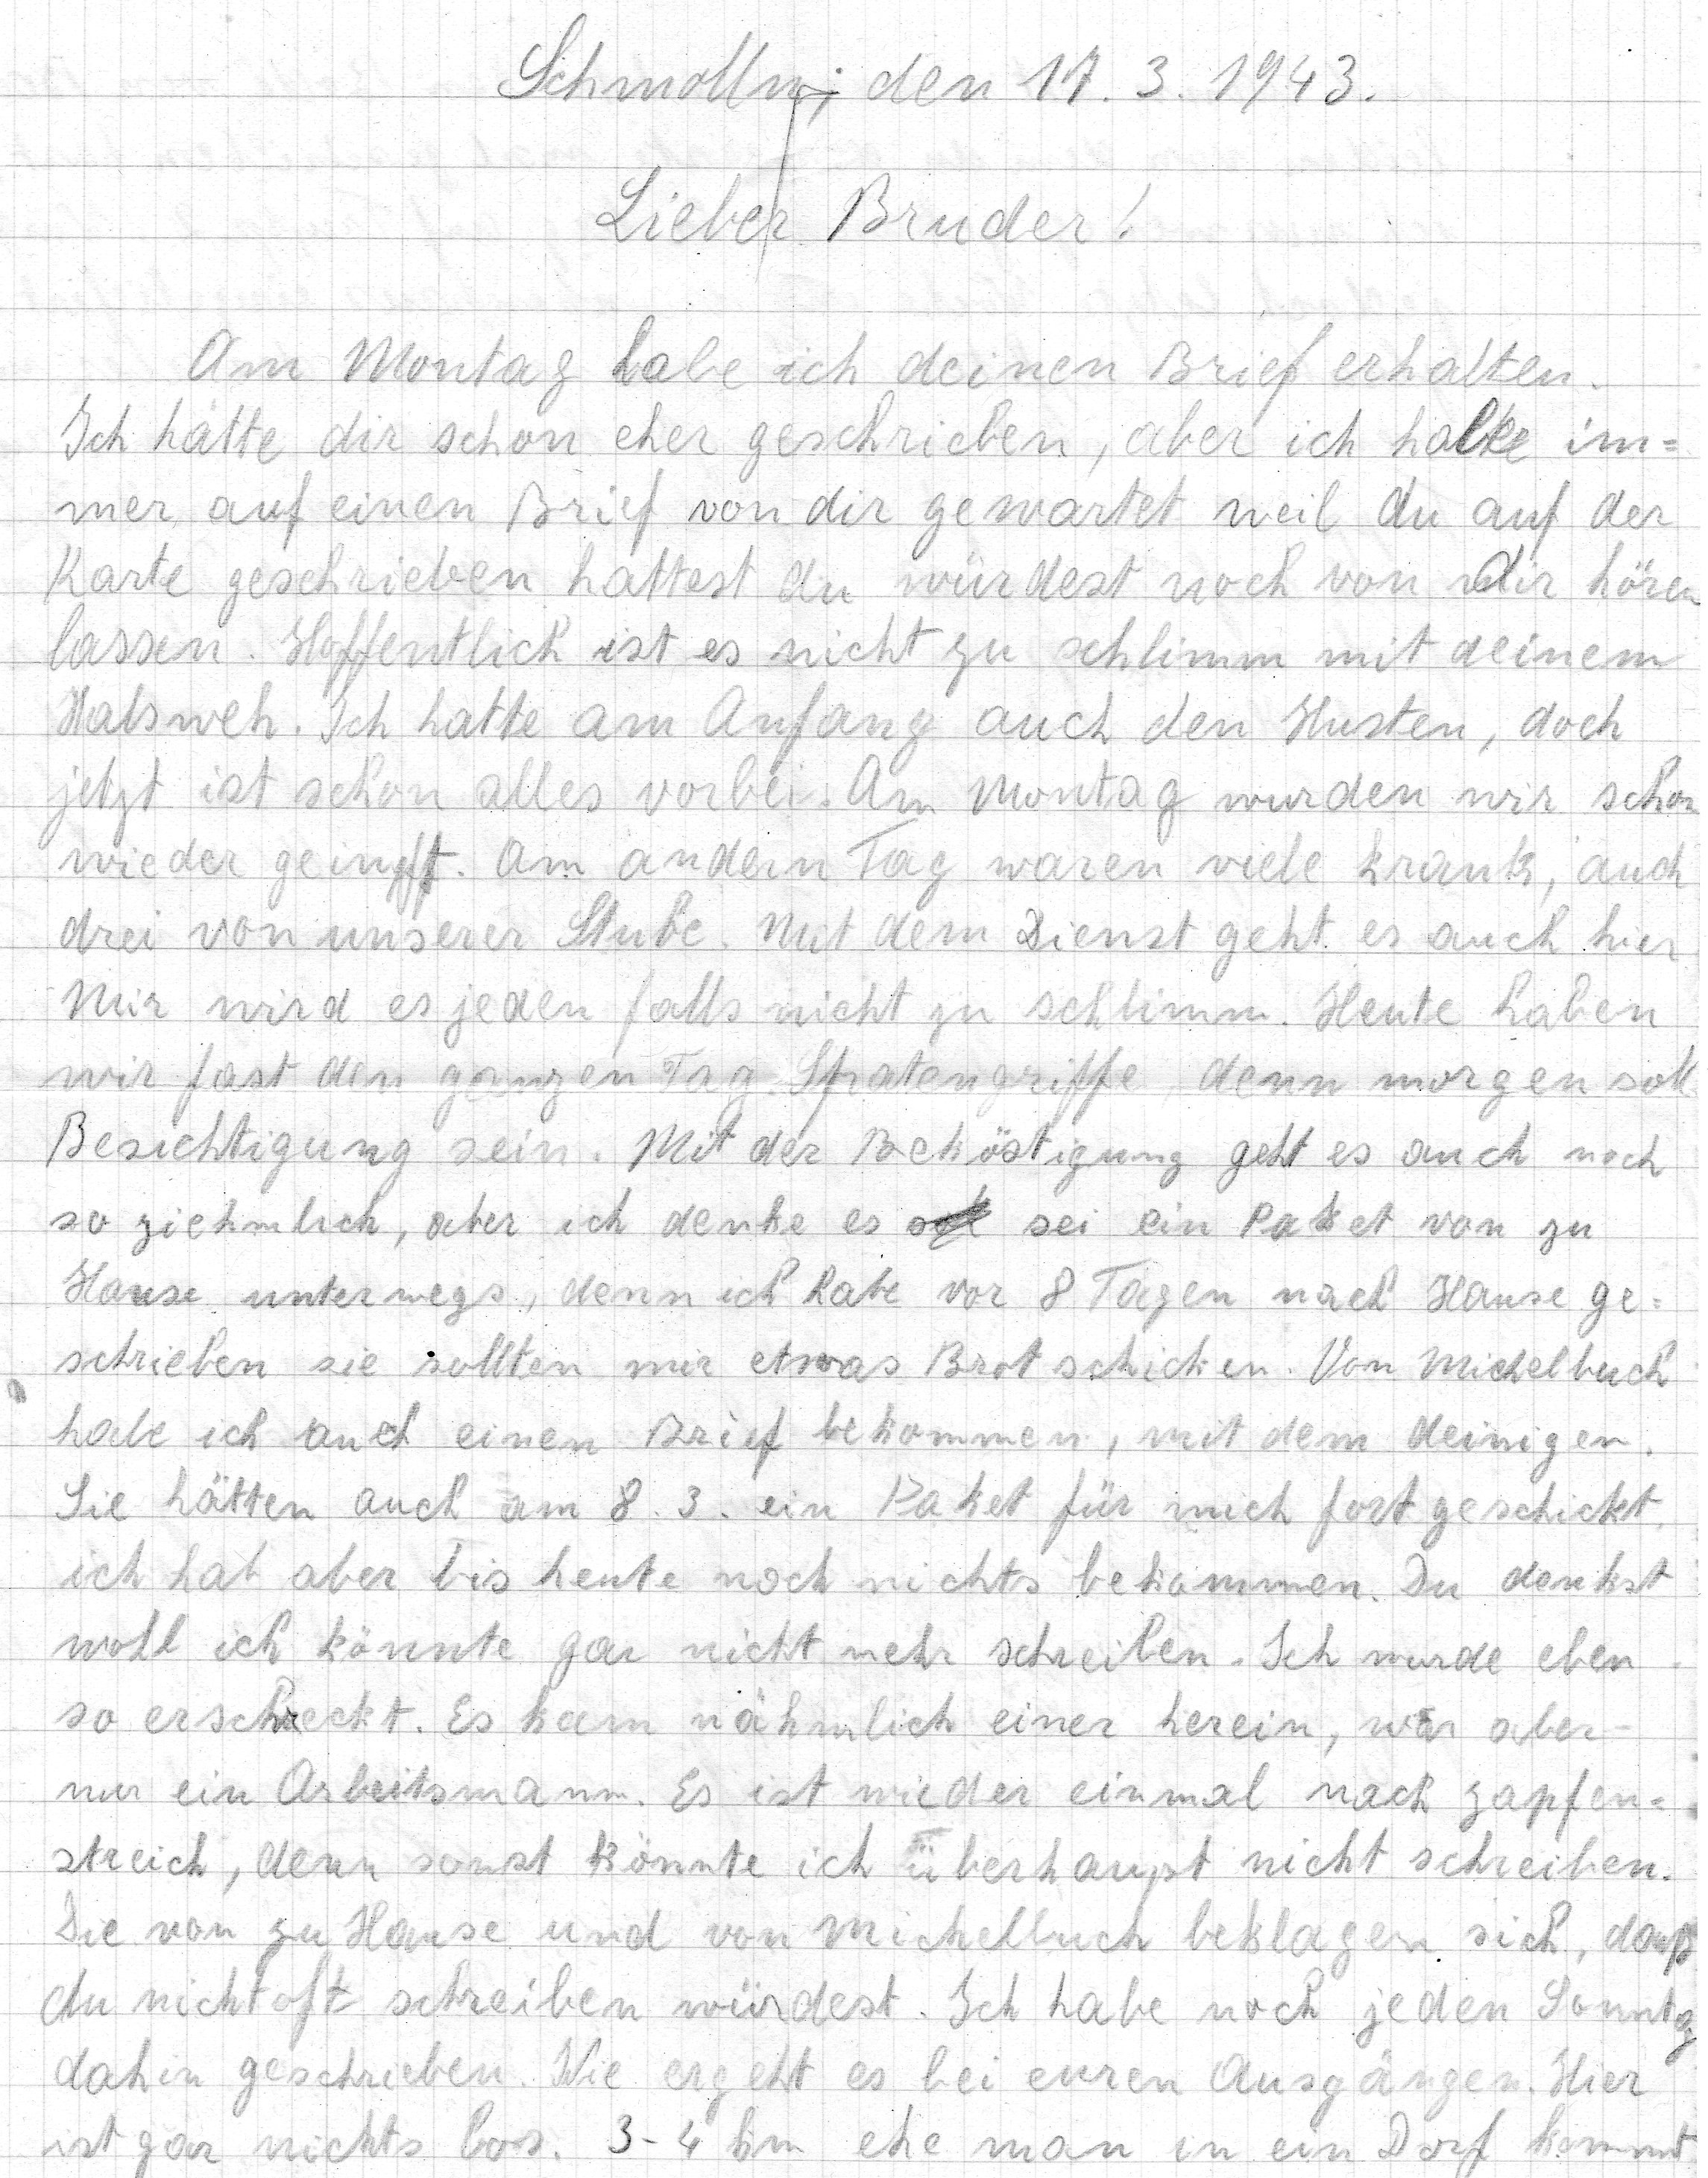 Schmolln, den 17. 3. 1943.
Lieber Bruder!
Am Montag habe ich deinen Brief erhalten.
Ich hätte dir schon eher geschrieben, aber ich hatte im=
mer auf einen Brief von dir gewartet weil du auf der
Karte geschrieben hattest du würdest noch von dir hören
lassen. Hoffentlich ist es nicht zu schlimm mit deinem
Halsweh. Ich hatte am Anfang auch den Husten, doch
jetzt ist schon alles vorbei. Am Montag wurden wir schon
wieder geimpft. Am andern Tag waren viele krank, auch
drei von unserer Stube. Mit dem Dienst geht es auch hier
Mir wird es jeden falls nicht zu schlimm. Heute haben
wir fast den ganzen Tag Spatengriffe, denn morgen soll
Besichtigung sein. Mit der Beköstigung geht es auch noch
so ziehmlich, aber ich denke es sei ein Paket von zu
Hause unterwegs, denn ich habe vor 8 Tagen nach Hause ge=
schrieben sie sollten mir etwas Brot schicken. Von Michelbuch
habe ich auch einen Brief bekommen, mit dem deinigen.
Sie hätten auch am 8. 3. ein Paket für mich fortgeschickt,
ich hab aber bis heute noch nichts bekommen. Du denkst
wohl ich könnte gar nicht mehr schreiben. Ich wurde eben
so erschreckt. Es kam nähmlich einer herein, war aber
nur ein Arbeitsmann. Es ist wieder einmal nach zapfen=
streich, denn sonst könnte ich überhaupt nicht schreiben.
Die von zu Hause und von Michelbuch beklagen sich, daß
du nicht oft schreiben würdest. Ich habe noch jeden Sonntag
dahin geschrieben. Wie ergeht es bei euren Ausgängen. Hier
ist gar nichts los. 3-4 km ehe man in ein Dorf kommt